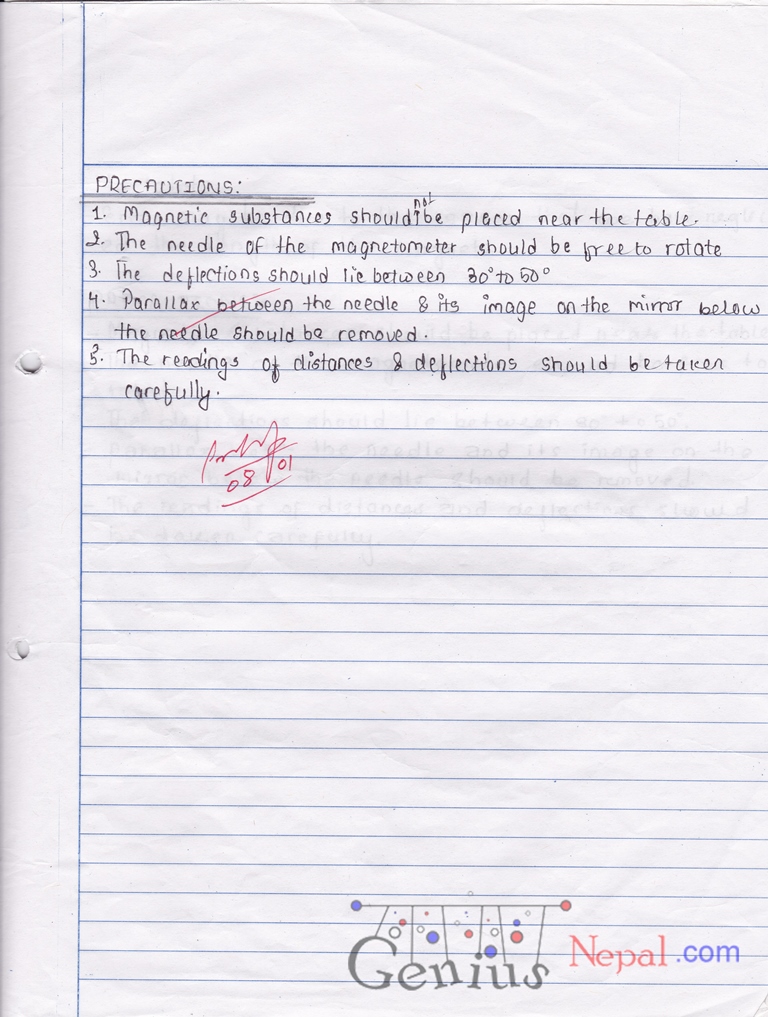 PRECAUTIONS:
1. Magnetic substances should not be placed near the table.
2. The needle of the magnetometer should be free to rotate
3. The deflections should lie between 30° to 50°
4. Parallax between the needle & its image on the mirror below
the needle should be removed.
5. The readings of distances & deflections should be taken
carefully.
08 01
Genius Nepal.com